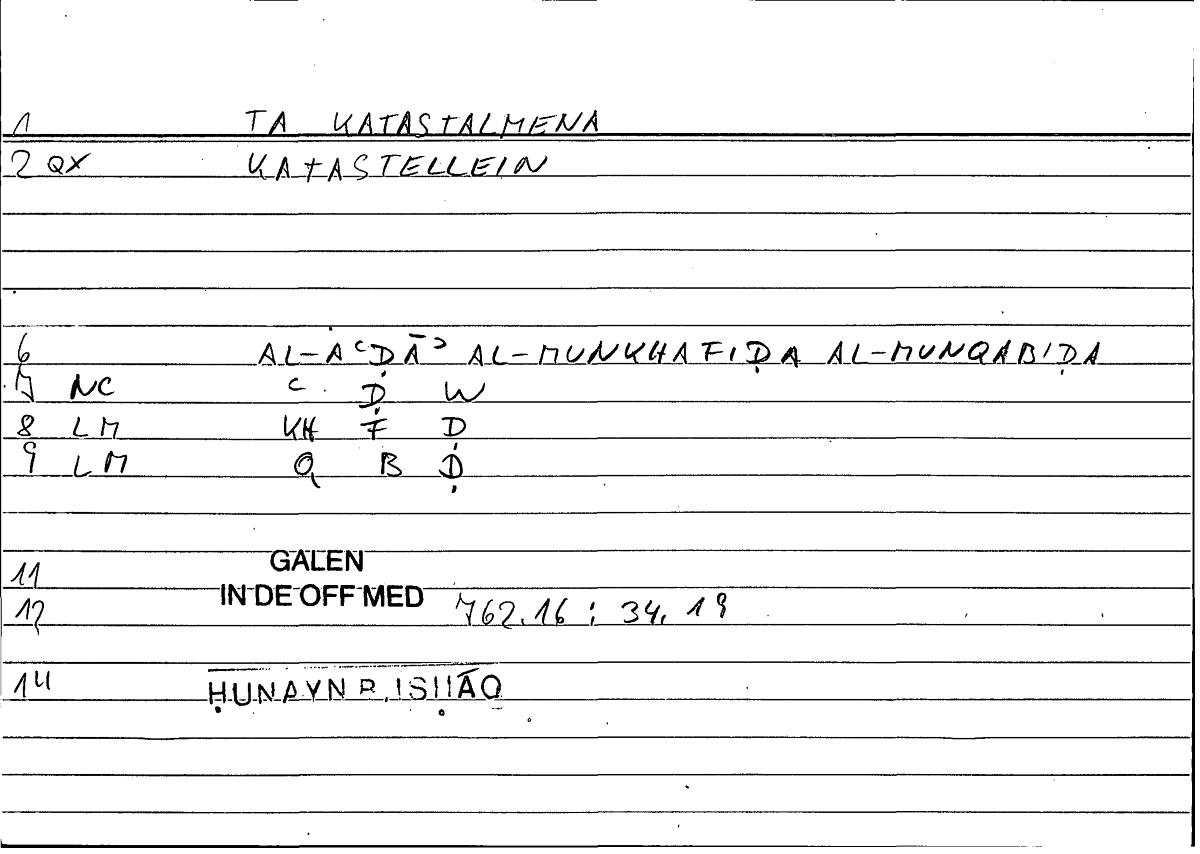 1 TA KATASTALMENA
2 QX KATASTELLEIN
6 AL-AʿḌĀʾ AL-MUNKHAFIḌA AL-MUNQABIḌA
7 NC ʿ Ḍ W
8 LM KH F Ḍ
9 LM Q B Ḍ
11 GALEN
12 IN DE OFF MED 762.16 ; 34.19
14 ḤUNAYN B. ISḤĀQ